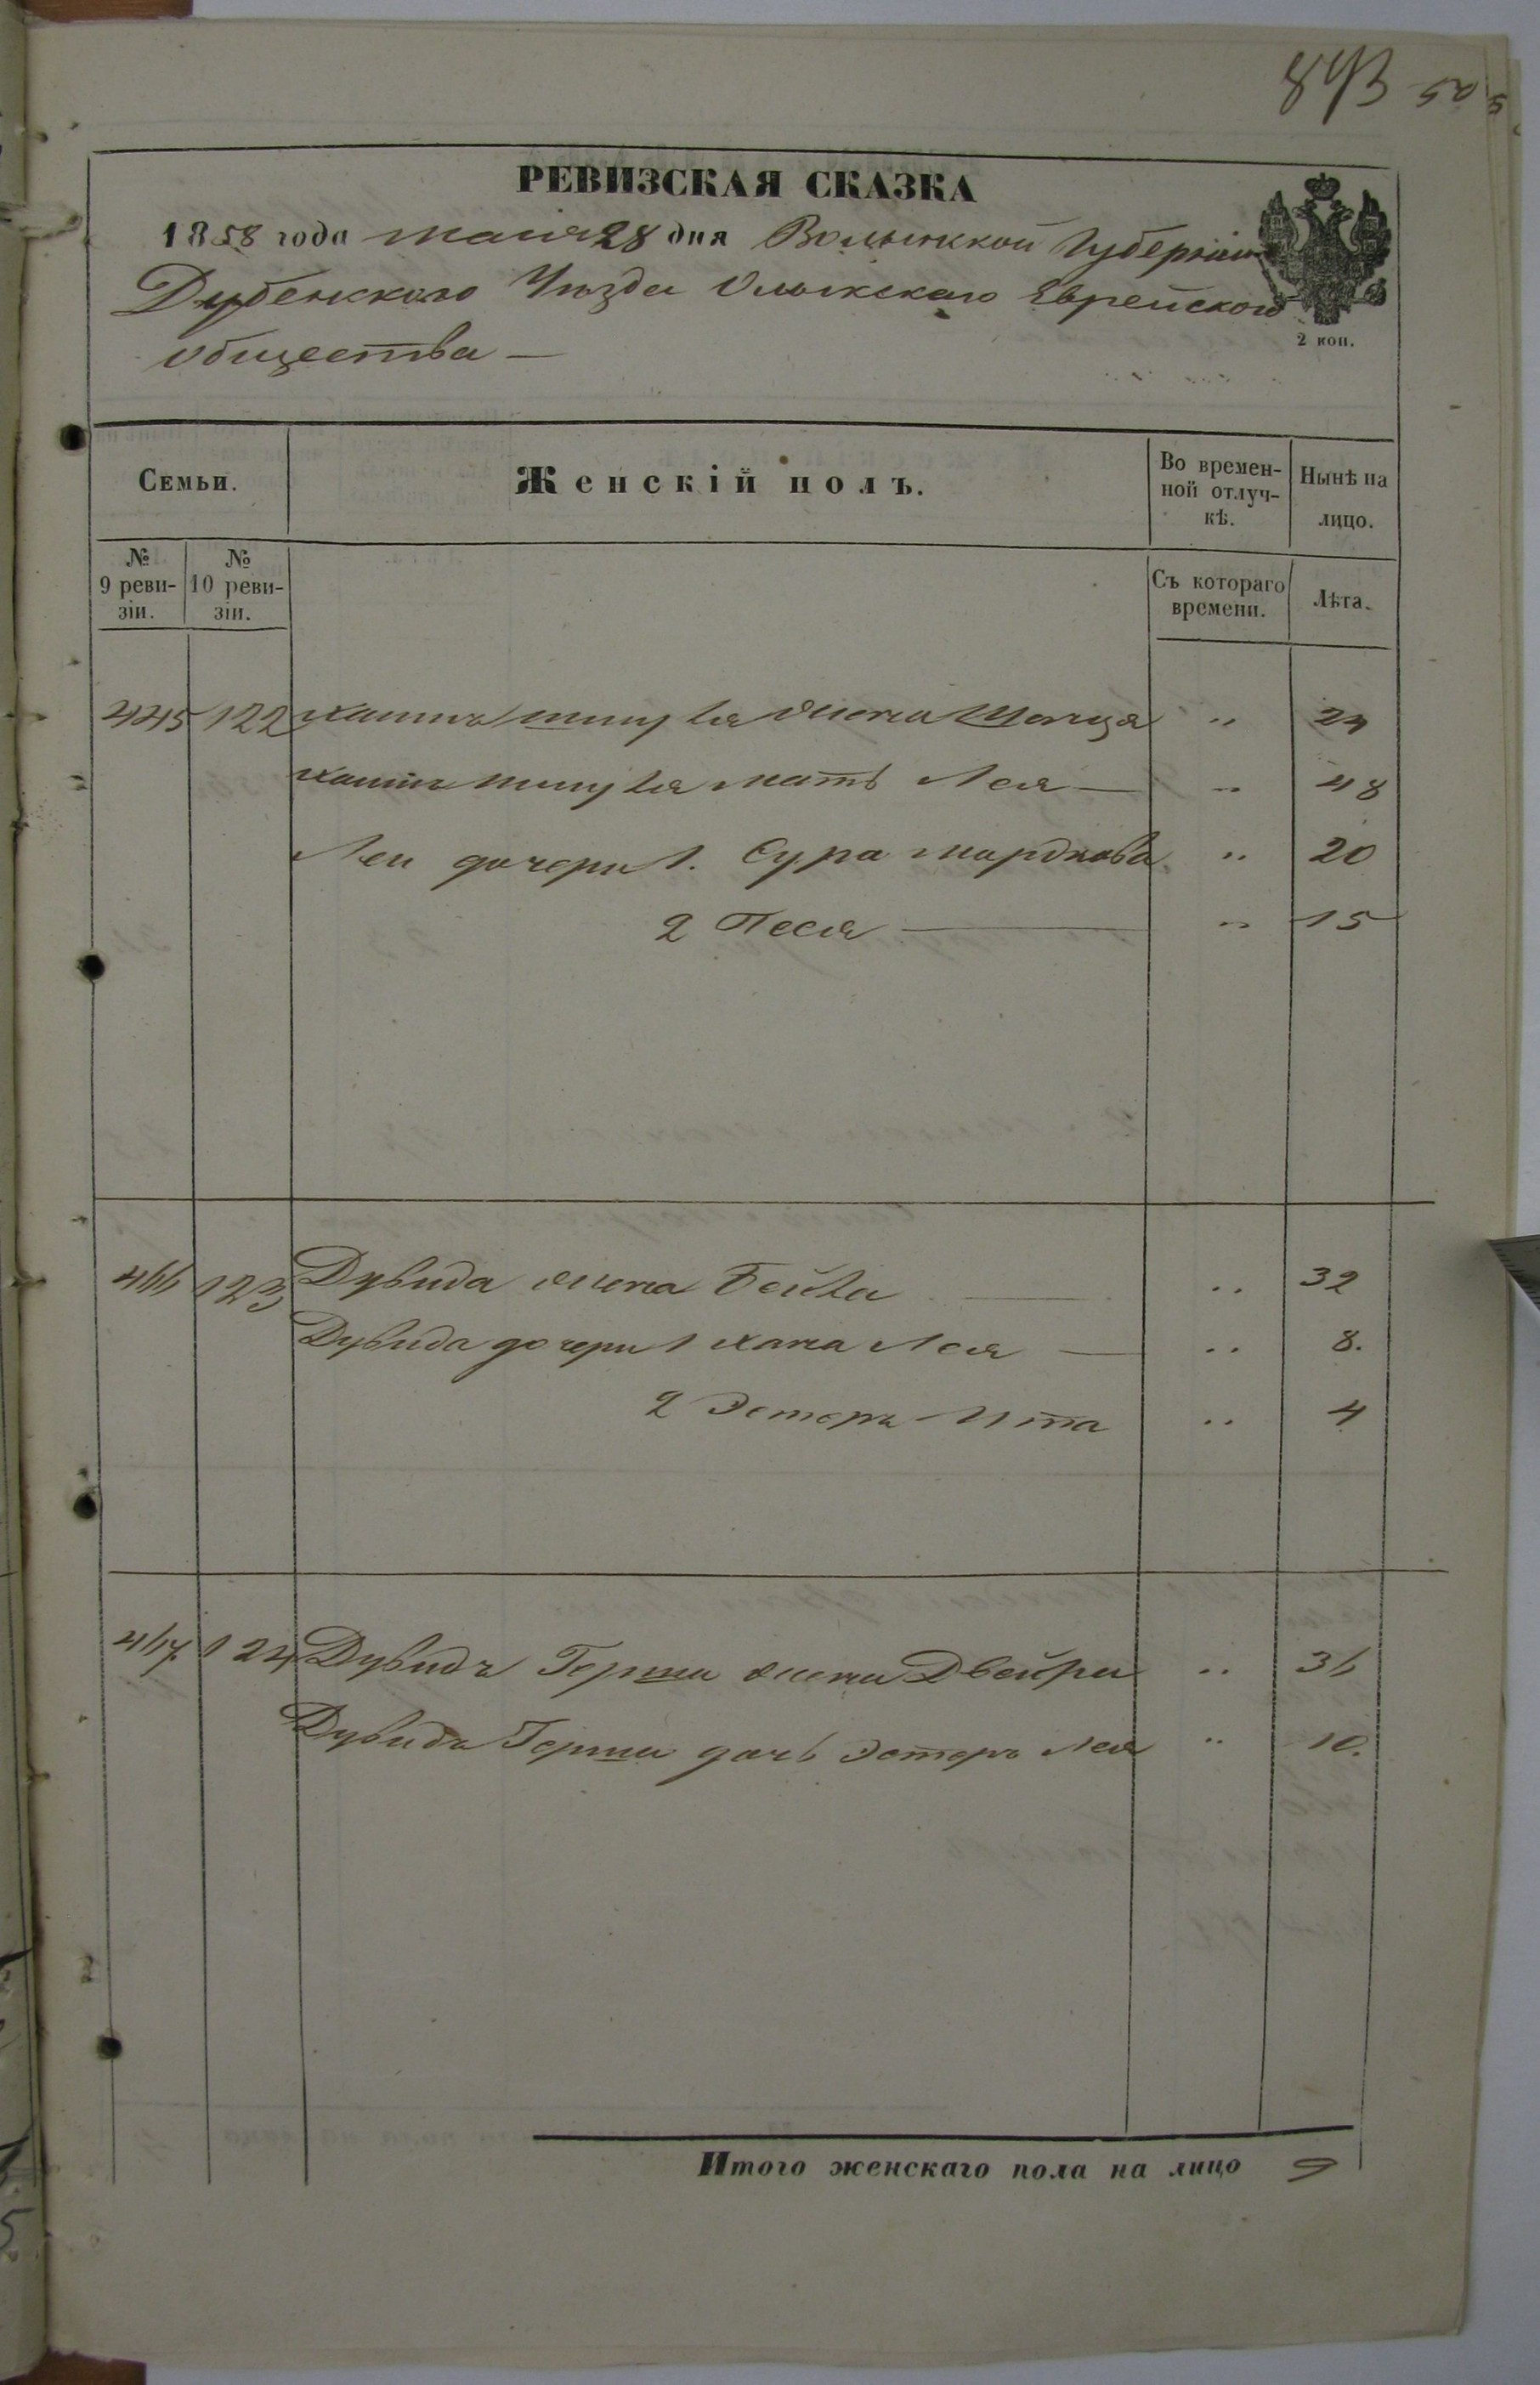 843
РЕВИЗСКАЯ СКАЗКА
1858 года маія 28 дня Волынской Губерніи
Дубенского Уѣзда Олыкскаго Еврейского
общества —
2 коп.
Семьи.
Женскій полъ.
Во времен-
ной отлуч-
кѣ.
Нынѣ на
лицо.
№
9 реви-
зіи.
№
10 реви-
зіи.
Съ котораго
времени.
Лѣта.
445 122 жена " 24
мать Лея — " 48
Леи дочери 1. Сура мордкова " 20
2 Песя — " 15
446 123 Дувида жена Бейла — " 32
Дувида дочери 1 хана Лея — " 8.
2 Эстеръ Ита " 4
447. 124 Дувидъ Герша жена Двейра " 36
Дувидъ Герша дочь Эстеръ Лея " 10.
Итого женскаго пола на лицо 9